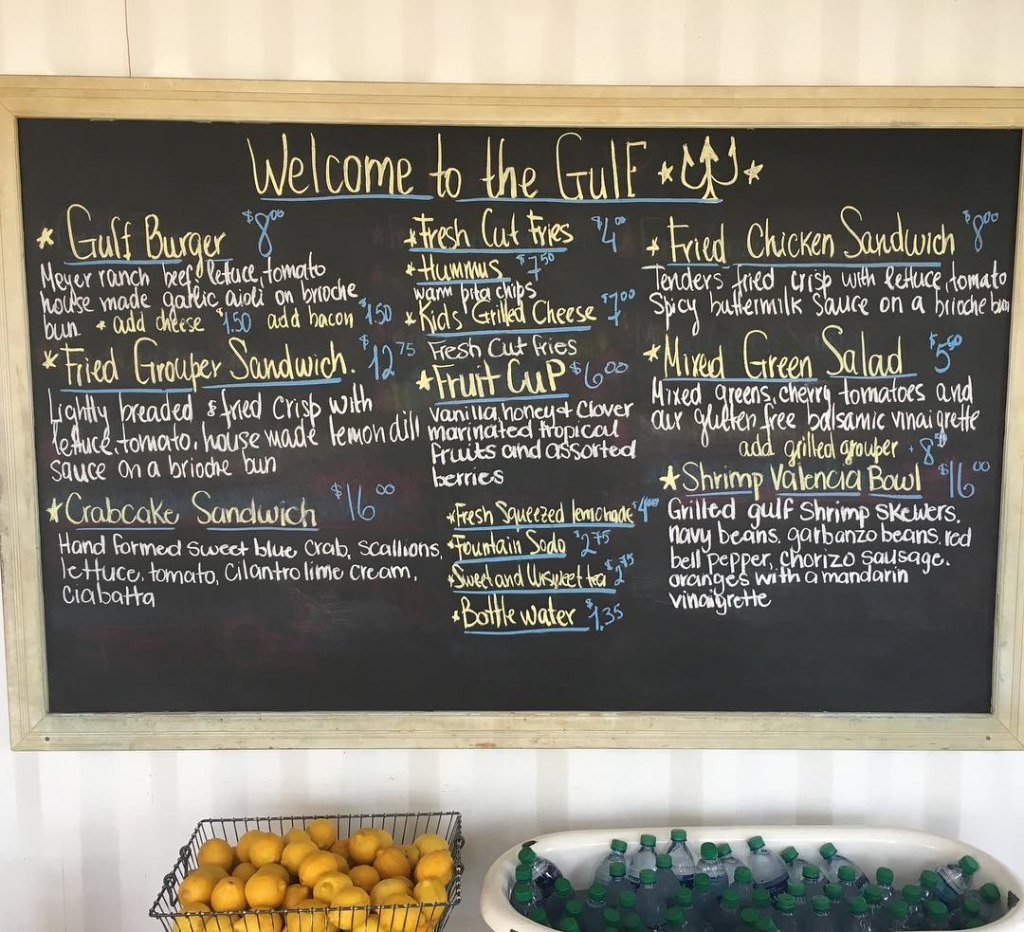 Welcome to the Gulf
Gulf Burger $8.00
Meyer ranch beef, lettuce, tomato
house made garlic aioli on brioche
bun * add cheese $1.50 add bacon $1.50
Fried Grouper Sandwich. $12.75
Lightly breaded & fried crisp with
lettuce, tomato, house made lemon dill
sauce on a brioche bun
Crabcake Sandwich $16.00
Hand formed sweet blue crab, scallions,
lettuce, tomato, cilantro lime cream,
ciabatta
Fresh Cut Fries $4.00
Hummus $7.50
warm pita chips
Kids' Grilled Cheese $7.00
Fresh Cut fries
Fruit Cup $6.00
vanilla, honey + clover
marinated tropical
fruits and assorted
berries
Fresh Squeezed lemonade $4.00
Fountain Soda $2.75
Sweet and Unsweet tea $2.75
Bottle water $1.35
Fried Chicken Sandwich $8.00
Tenders fried crisp with lettuce, tomato
Spicy buttermilk sauce on a brioche bun
Mixed Green Salad $5.00
Mixed greens, cherry tomatoes and
our gluten free balsamic vinaigrette
add grilled grouper + 8.50
Shrimp Valencia Bowl $16.00
Grilled gulf shrimp skewers,
navy beans, garbanzo beans, red
bell pepper, chorizo sausage,
oranges with a mandarin
vinaigrette